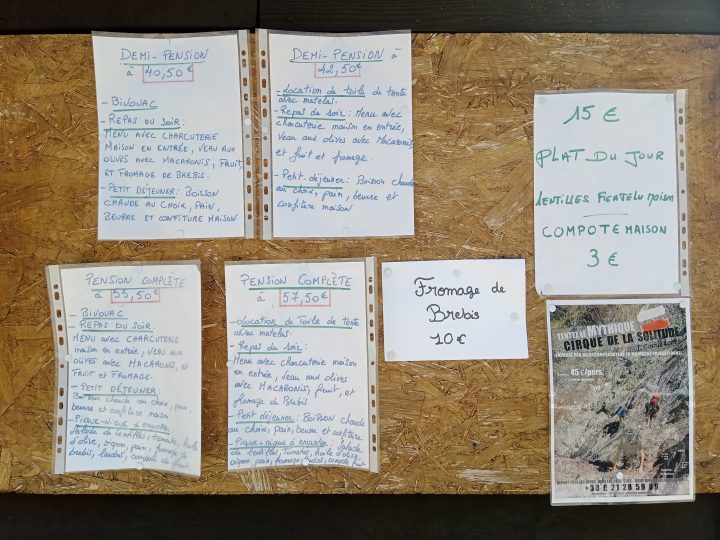 DEMI-PENSION
à 40,50€
- BIVOUAC
- REPAS DU SOIR:
MENU AVEC CHARCUTERIE
MAISON EN ENTRÉE, VEAU AUX
OLIVES AVEC MACARONIS, FRUIT
ET FROMAGE DE BREBIS.
- PETIT DÉJEUNER: BOISSON
CHAUDE AU CHOIX, PAIN,
BEURRE ET CONFITURE MAISON
DEMI-PENSION à
42,50€
- Location de toile de tente
avec matelas.
- Repas du soir: Menu avec
charcuterie maison en entrée,
veau aux olives avec Macaronis
et fruit et fromage.
- Petit déjeuner: Boisson chaude
au choix, pain, beurre et
confiture maison
15 €
PLAT DU JOUR
LENTILLES FIGATELLU MAISON
COMPOTE MAISON
3 €
PENSION COMPLÈTE
à 55,50€
- BIVOUAC
- REPAS DU SOIR:
MENU AVEC CHARCUTERIE
maison en entrée, VEAU AUX
OLIVES AVEC MACARONIS, et
FRUIT ET FROMAGE.
- PETIT DÉJEUNER:
Boisson chaude au choix, pain,
beurre et confiture maison
- PIQUE-NIQUE à emporter
salade de lentilles, tomate, huile
d'olive, oignon, pain, fromage de
brebis, lardons, compote de fruit
PENSION COMPLÈTE
à 57,50€
- Location de Toile de tente
avec matelas.
- Repas du soir:
Menu avec charcuterie maison
en entrée, veau aux olives
avec MACARONIS, fruit, et
fromage de Brebis
- Petit déjeuner: Boisson chaude
au choix, pain, beurre et confiture
- Pique-nique à emporter: salade
de lentilles, Tomates, huile d'olive,
oignon, pain, fromage Brebis, compote fruit
Fromage de
Brebis
10€
TENTEZ LE MYTHIQUE
CIRQUE DE LA SOLITUDE
45 €/pers.
+33 6 21 28 59 89